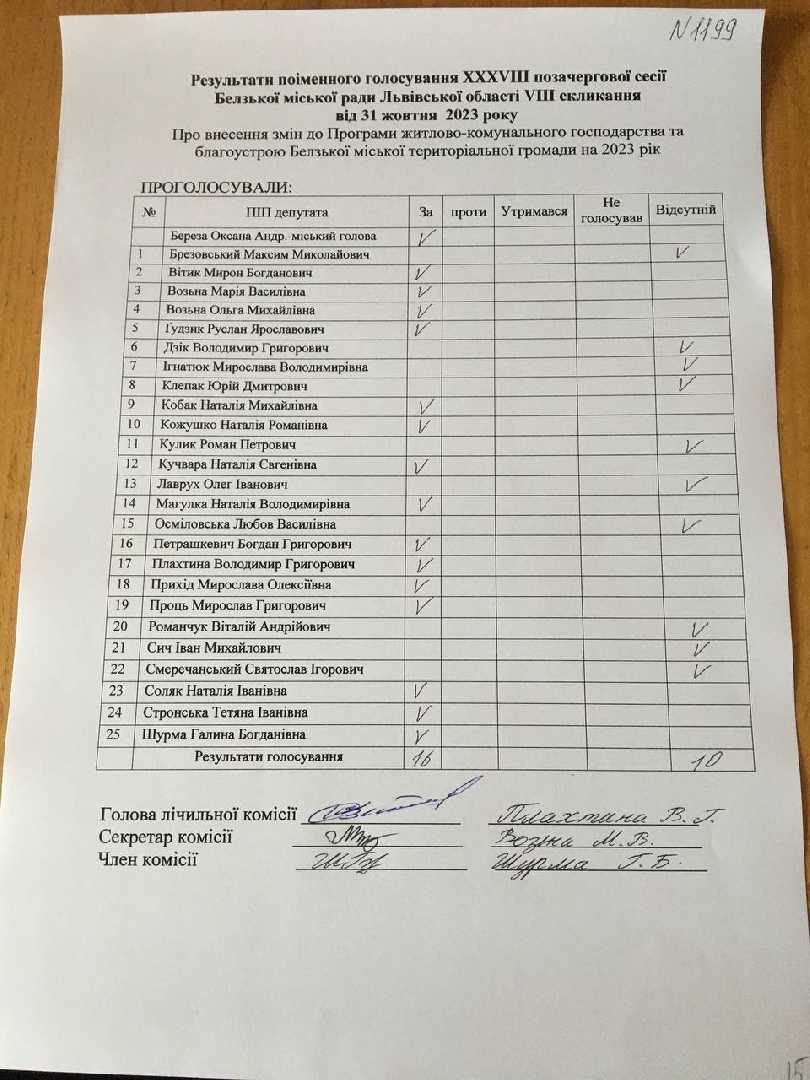 N 1199
Результати поіменного голосування XXXVIII позачергової сесії
Белзької міської ради Львівської області VIII скликання
від 31 жовтня 2023 року
Про внесення змін до Програми житлово-комунального господарства та
благоустрою Белзької міської територіальної громади на 2023 рік
ПРОГОЛОСУВАЛИ:
№ ПІП депутата За проти Утримався Не голосував Відсутній
Береза Оксана Андр.-міський голова V
1 Брезовський Максим Миколайович V
2 Вітик Мирон Богданович V
3 Возьна Марія Василівна V
4 Возьна Ольга Михайлівна V
5 Гудзик Руслан Ярославович V
6 Дзік Володимир Григорович V
7 Ігнатюк Мирослава Володимирівна V
8 Клепак Юрій Дмитрович V
9 Кобак Наталія Михайлівна V
10 Кожушко Наталія Романівна V
11 Кулик Роман Петрович V
12 Кучвара Наталія Євгенівна V
13 Лаврух Олег Іванович V
14 Магулка Наталія Володимирівна V
15 Осміловська Любов Василівна V
16 Петрашкевич Богдан Григорович V
17 Плахтина Володимир Григорович V
18 Прихід Мирослава Олексіївна V
19 Проць Мирослав Григорович V
20 Романчук Віталій Андрійович V
21 Сич Іван Михайлович V
22 Смеречанський Святослав Ігорович V
23 Соляк Наталія Іванівна V
24 Стронська Тетяна Іванівна V
25 Шурма Галина Богданівна V
Результати голосування 16 10
Голова лічильної комісії Плахтина В. Г.
Секретар комісії Возьна М. В.
Член комісії Шурма Г. Б.
15